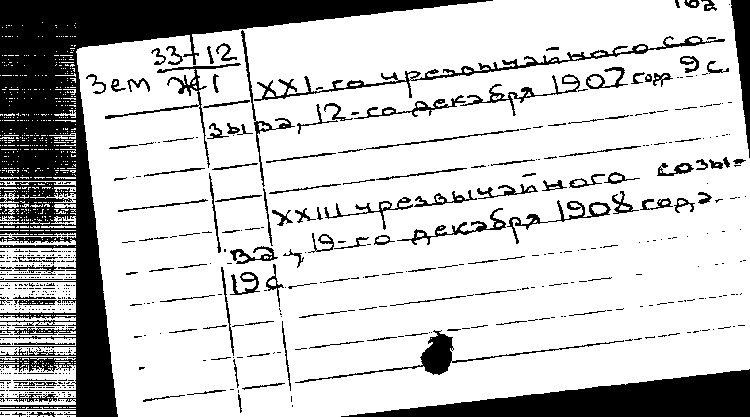 33-12
Зем Ж1
XXI-го чрезвычайного со-
зыва, 12-го декабря 1907 года 9 с.
XXIII чрезвычайного созы-
ва, 19-го декабря 1908 года.
19 с.